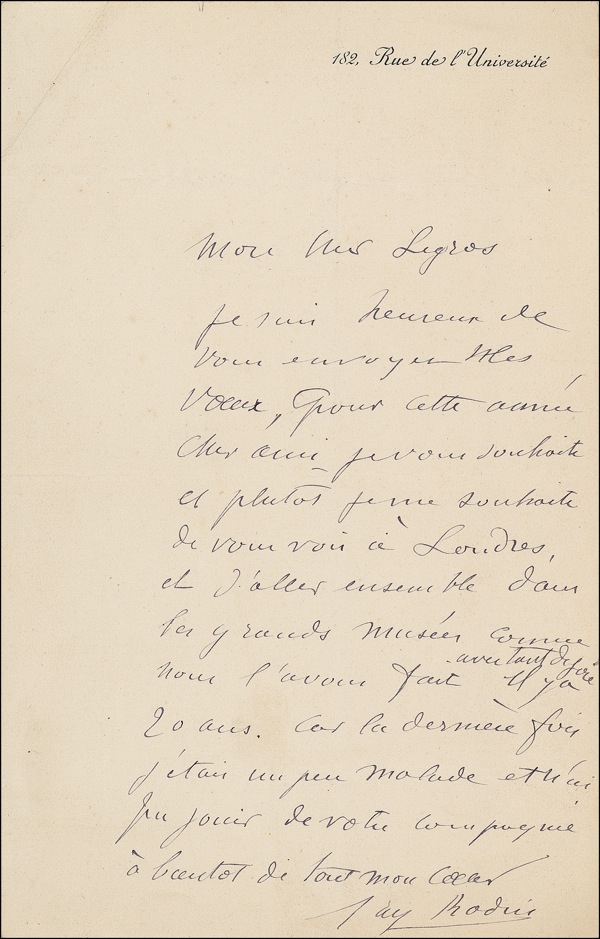 182, Rue de l'Université
Mon cher Legros
je suis heureux de
vous envoyer Mes
Vœux, pour cette année
cher ami – je vous souhaite
et plutot je me souhaite
de vous voir à Londres,
et d'aller ensemble dans
les grands musées comme
avec tant de joie
nous l'avons fait Il y a
20 ans. Car la dernière fois
j'etais un peu malade et n'ai
pu jouir de votre compagnie
à bientot de tout mon Cœur
Rodin